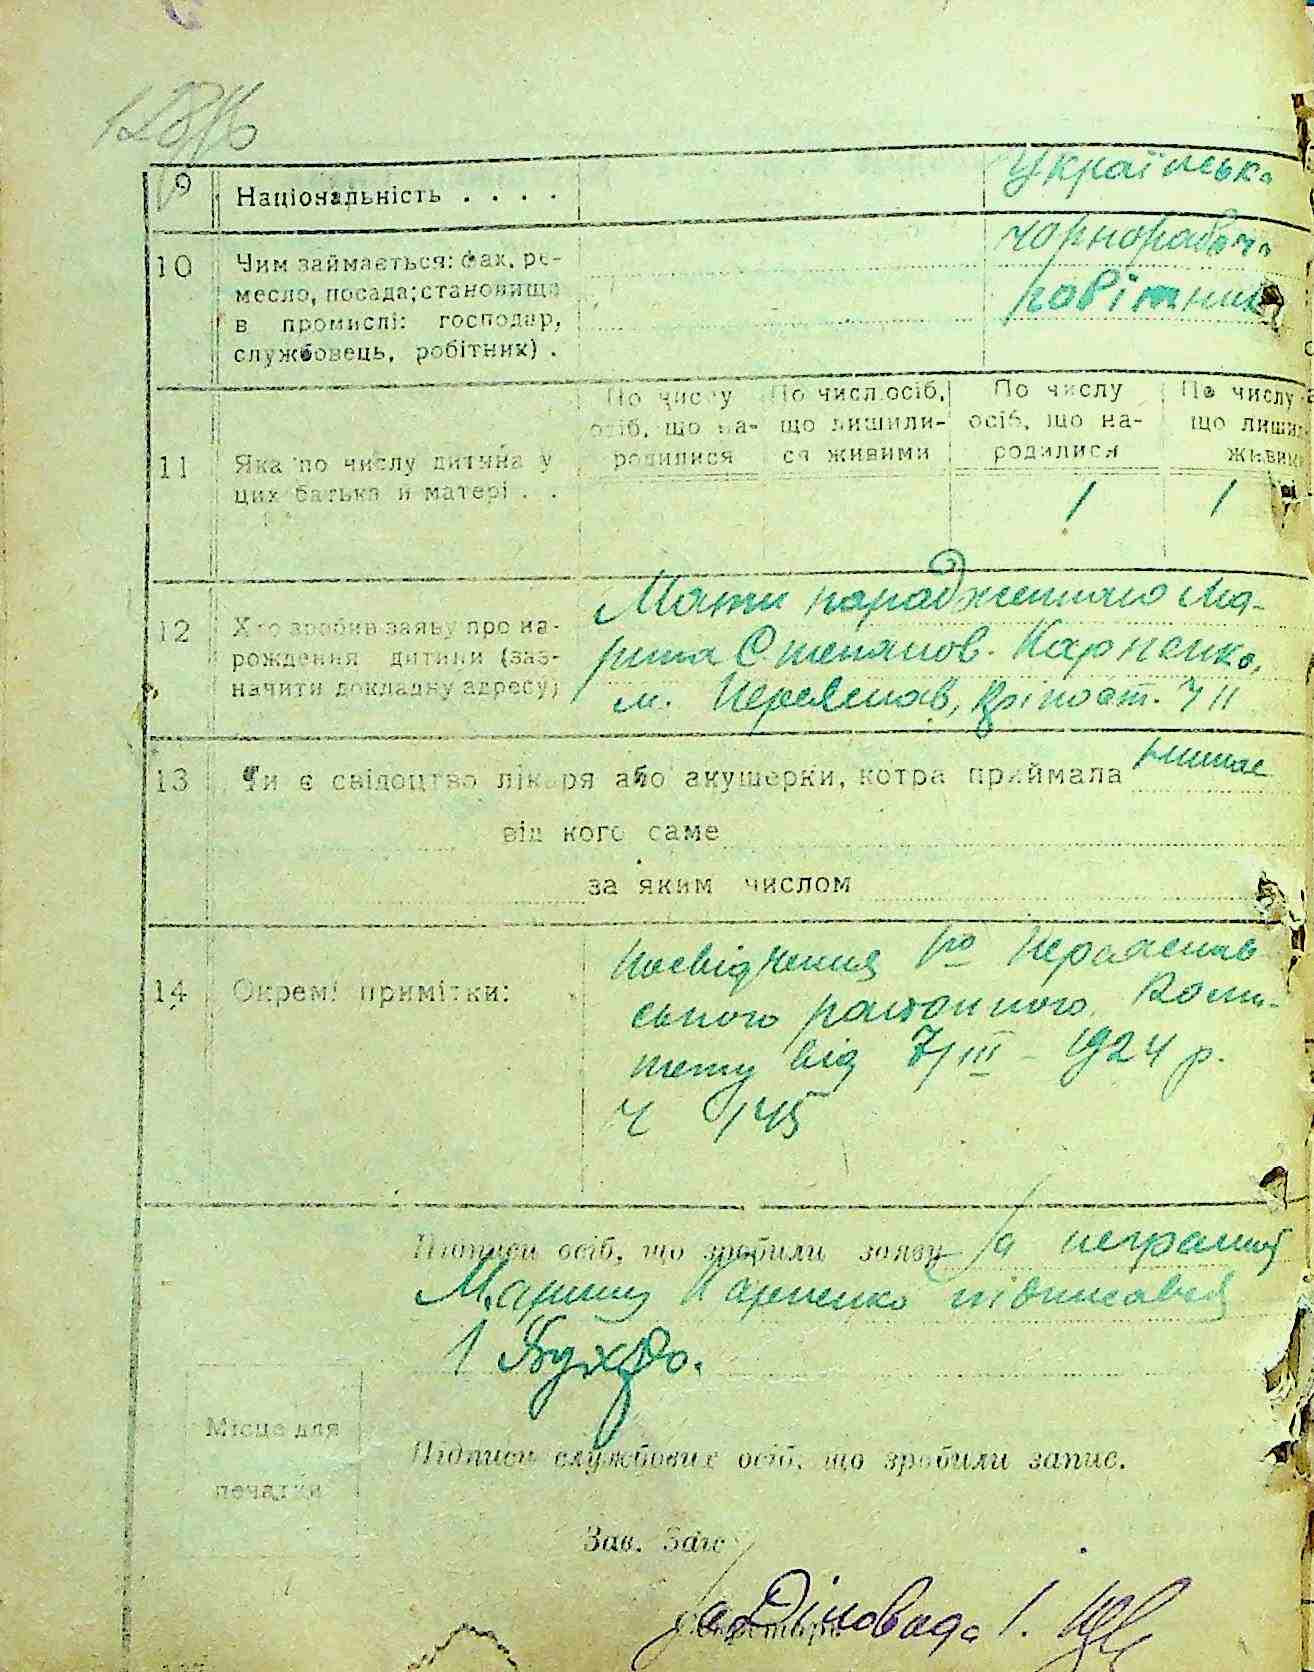 9 Національність . . . .
Українська
10 Чим займається: фах, ре-
месло, посада; становище
в промислі: господар,
службовець, робітник) .
чорнороб
робітниця
По числу осіб, що на- родилися
По числ осіб, що лишили- ся живими
По числу осіб, що на- родилися
По числу що лиши живи
11 Яка по числу дитина у
цих батька й матері . .
1 1
12 Хто зробив заяву про на-
рождення дитини (заз-
начити докладну адресу)
Мати народженного Ма-
рина Степанов. Карпенко,
м. Переяслав, Кріпост. 7 11
13 Чи є свідоцтво лікаря або акушерки, котра приймала немає
від кого саме
за яким числом
14 Окремі примітки:
Посвідчення Переяслав
ського районного Комі-
тету від 7/III – 1924 р.
ч 145
Підписи осіб, що зробили заяву За неграмот
Марину Карпенко підписався
Місце для
печатки
Підписи службових осіб, що зробили запис.
Зав. Загс
Діловода І.